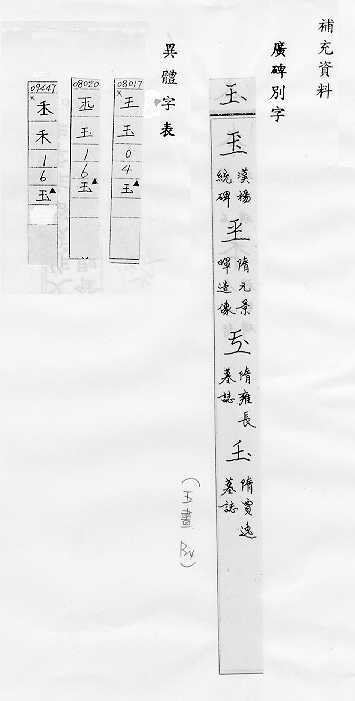 補充資料
廣碑別字
玉
漢楊
統碑
隋元景
暉造像
隋雍長
墓誌
玉
隋賈逸
墓誌
異體字表
08017
王
玉
0
4
玉▲
08020
玉
1
6
玉▲
09447
禾
1
6
玉▲